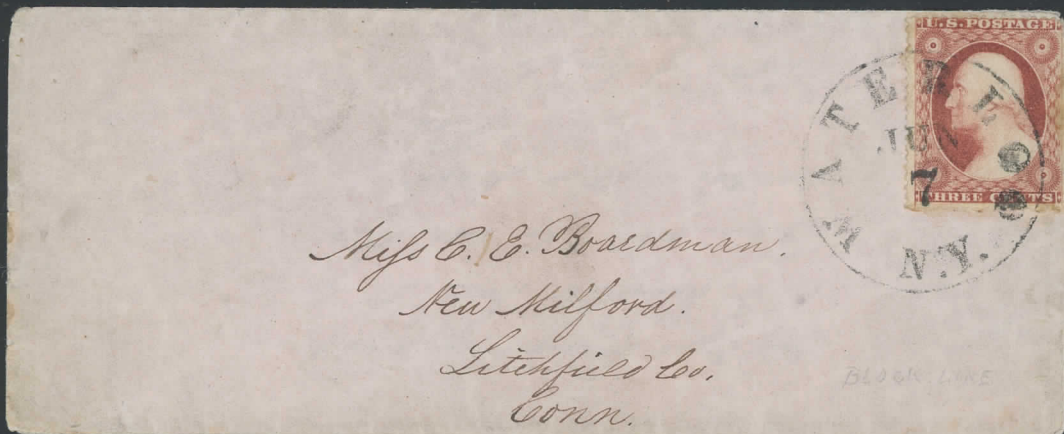 U.S. POSTAGE
THREE CENTS
WATERLOO
7
N.Y.
Miſs C. E. Boardman.
New Milford.
Litchfield Co.
Conn.